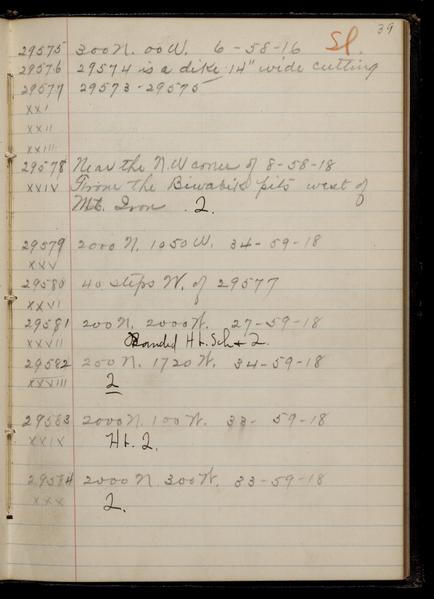 39
29575 300 N. 00 W. 6-58-16 Sl.
29576 29574 is a dike 14" wide cutting
29577 29573-29575
XXI
XXII
XXIII
29578 Near the N.W corner of 8-58-18
XXIV From the Biwabik pits west of
Mt. Iron. 2.
29579 2000 N. 1050 W. 34-59-18
XXV
29580 40 steps W. of 29577
XXVI
29581 200 N. 2000 W. 27-59-18
XXVII Banded Ht. Sch + 2.
29582 250 N. 1720 W. 34-59-18
XXVIII 2
29583 2000 N. 100 W. 33-59-18
XXIX Ht. 2.
29584 2000 N. 300 W. 33-59-18
XXX 2.